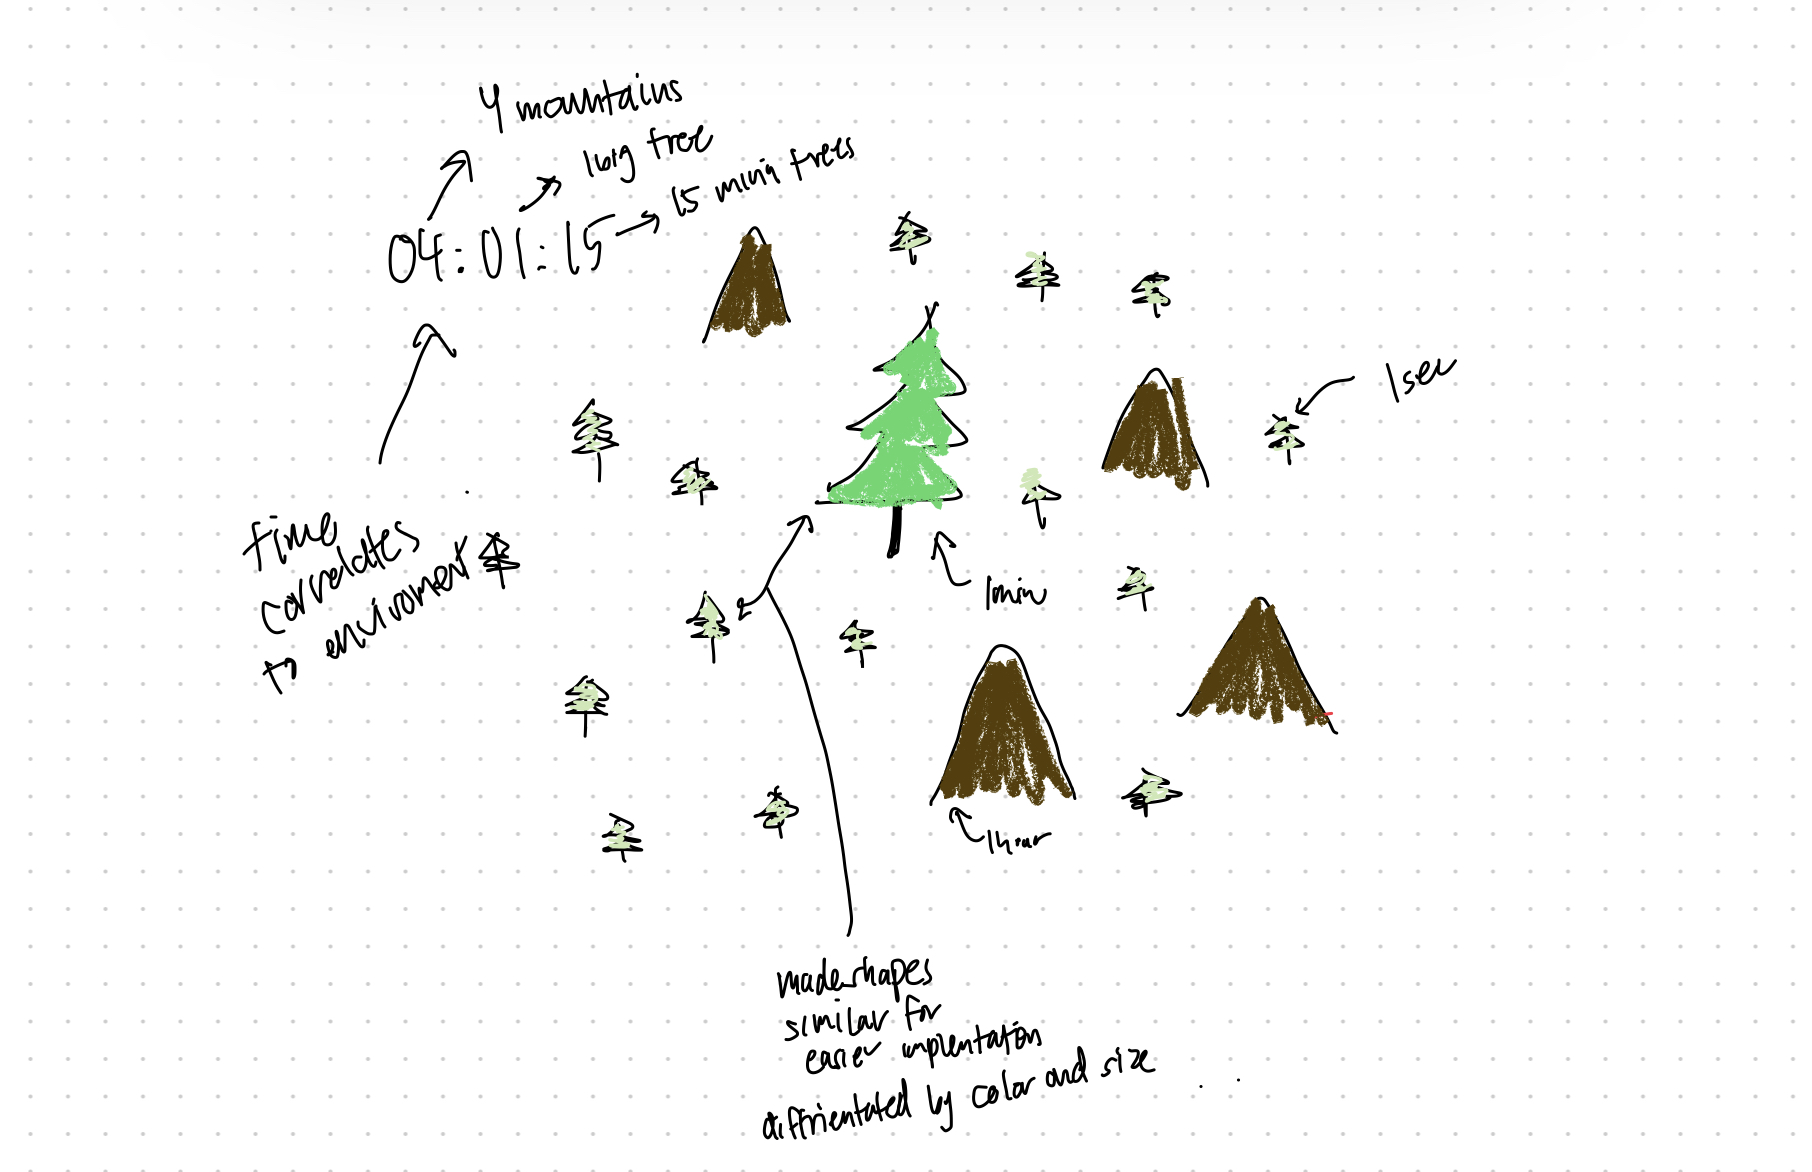 4 mountains
1 big tree
15 mini trees
04:01:15
1 sec
time
correlates
to enviroment
1 min
1 hour
made shapes
similar for
easier implentation
diffrientated by color and size